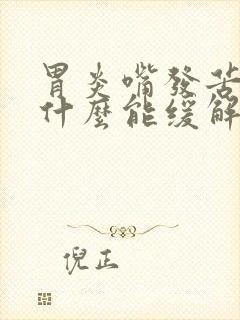 胃炎嘴發苦
什麼能緩解
倪正